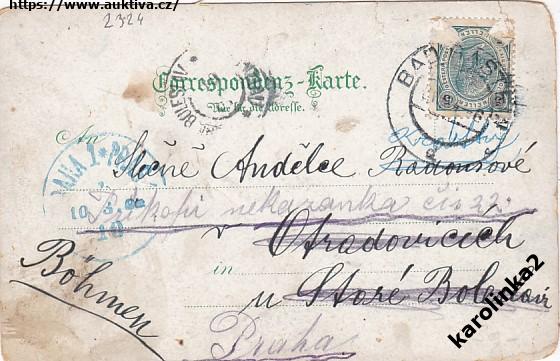 https://www.auktiva.cz/
2324
Correspondenz-Karte.
Nur für die Adresse.
BAD
An Slečně Andělce Radousové
PRAHA 1
10
Příkopi nekázanka čis 22.
Otradovicích
in
u Staré Boleslavi
Böhmen
Praha
karolinka2